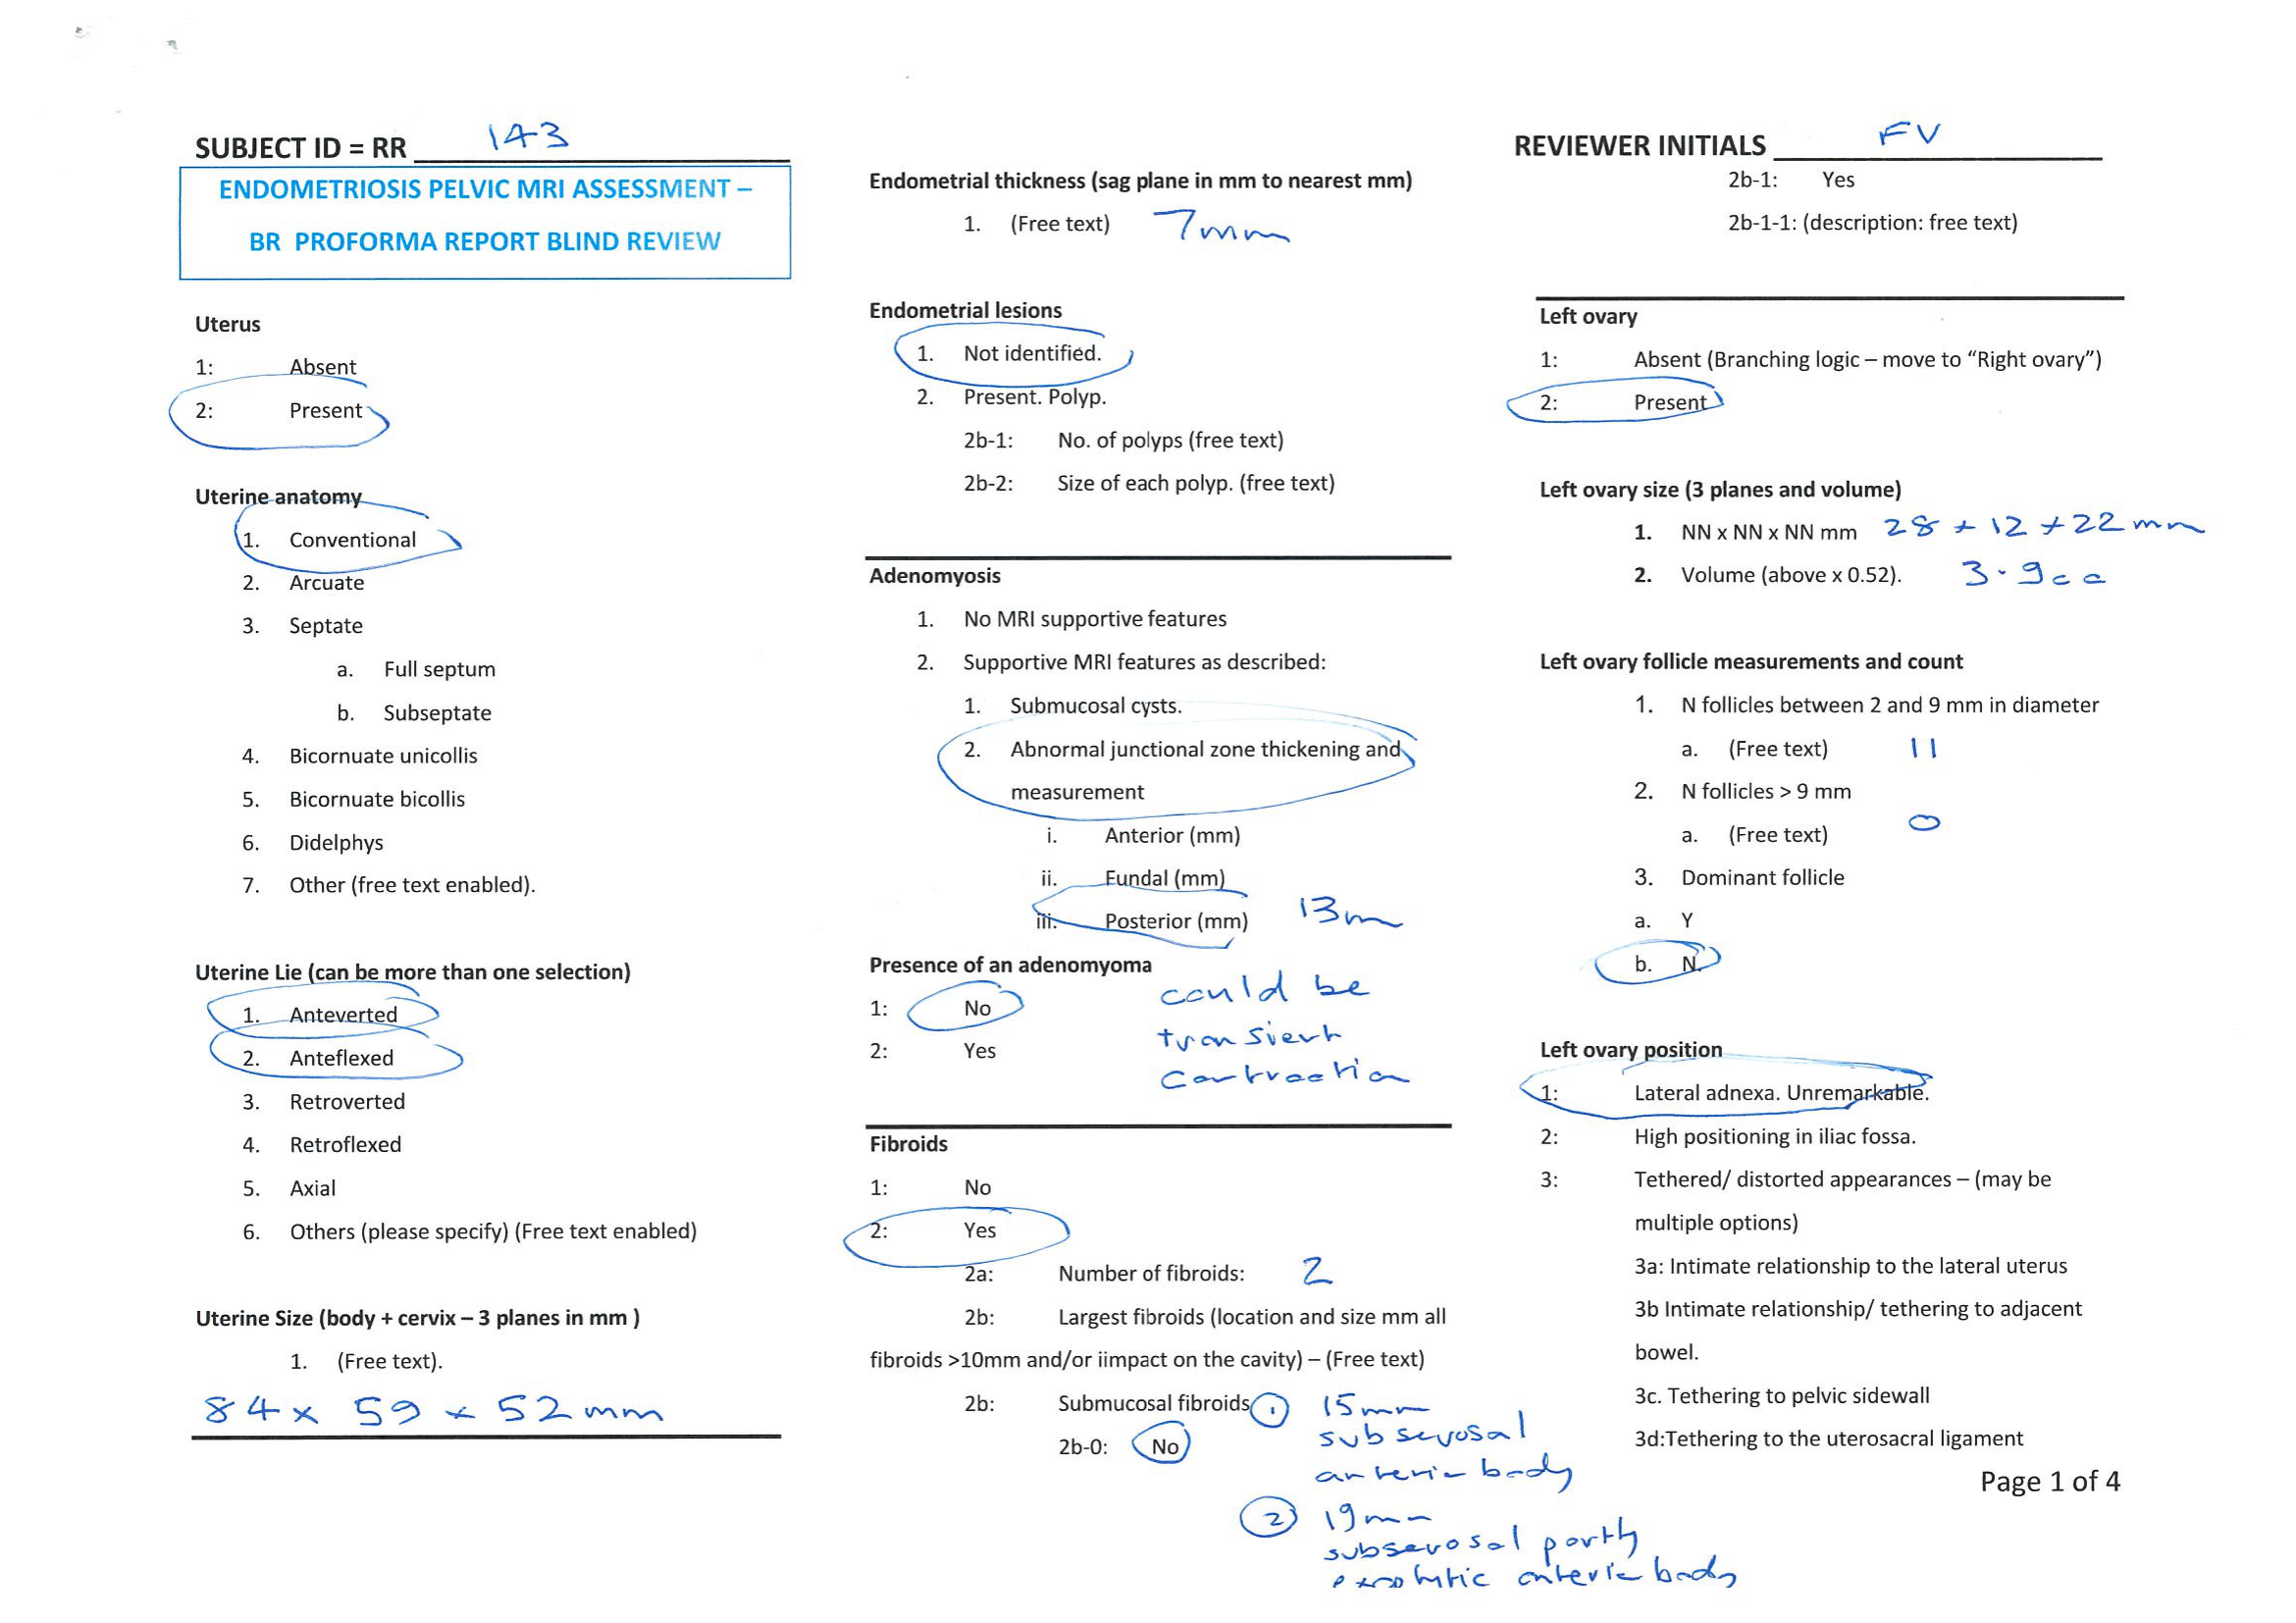 SUBJECT ID = RR 143
ENDOMETRIOSIS PELVIC MRI ASSESSMENT –
BR PROFORMA REPORT BLIND REVIEW
Uterus
1: Absent
2: Present
Uterine anatomy
1. Conventional
2. Arcuate
3. Septate
a. Full septum
b. Subseptate
4. Bicornuate unicollis
5. Bicornuate bicollis
6. Didelphys
7. Other (free text enabled).
Uterine Lie (can be more than one selection)
1. Anteverted
2. Anteflexed
3. Retroverted
4. Retroflexed
5. Axial
6. Others (please specify) (Free text enabled)
Uterine Size (body + cervix – 3 planes in mm )
1. (Free text).
84 x 59 x 52 mm
Endometrial thickness (sag plane in mm to nearest mm)
1. (Free text) 7mm
Endometrial lesions
1. Not identified.
2. Present. Polyp.
2b-1: No. of polyps (free text)
2b-2: Size of each polyp. (free text)
Adenomyosis
1. No MRI supportive features
2. Supportive MRI features as described:
1. Submucosal cysts.
2. Abnormal junctional zone thickening and
measurement
i. Anterior (mm)
ii. Fundal (mm)
iii. Posterior (mm) 13m
Presence of an adenomyoma
1: No
2: Yes
could be
transient
contraction
Fibroids
1: No
2: Yes
2a: Number of fibroids: 2
2b: Largest fibroids (location and size mm all
fibroids >10mm and/or iimpact on the cavity) – (Free text)
2b: Submucosal fibroids
2b-0: No
1 15mm
subserosal
anterior body
2 19mm
subserosal partly
exophytic anterior body
REVIEWER INITIALS FV
2b-1: Yes
2b-1-1: (description: free text)
Left ovary
1: Absent (Branching logic – move to “Right ovary”)
2: Present
Left ovary size (3 planes and volume)
1. NN x NN x NN mm 28 x 12 x 22 mm
2. Volume (above x 0.52). 3.9cc
Left ovary follicle measurements and count
1. N follicles between 2 and 9 mm in diameter
a. (Free text) 11
2. N follicles > 9 mm
a. (Free text) 0
3. Dominant follicle
a. Y
b. N.
Left ovary position
1: Lateral adnexa. Unremarkable.
2: High positioning in iliac fossa.
3: Tethered/ distorted appearances – (may be
multiple options)
3a: Intimate relationship to the lateral uterus
3b Intimate relationship/ tethering to adjacent
bowel.
3c. Tethering to pelvic sidewall
3d:Tethering to the uterosacral ligament
Page 1 of 4